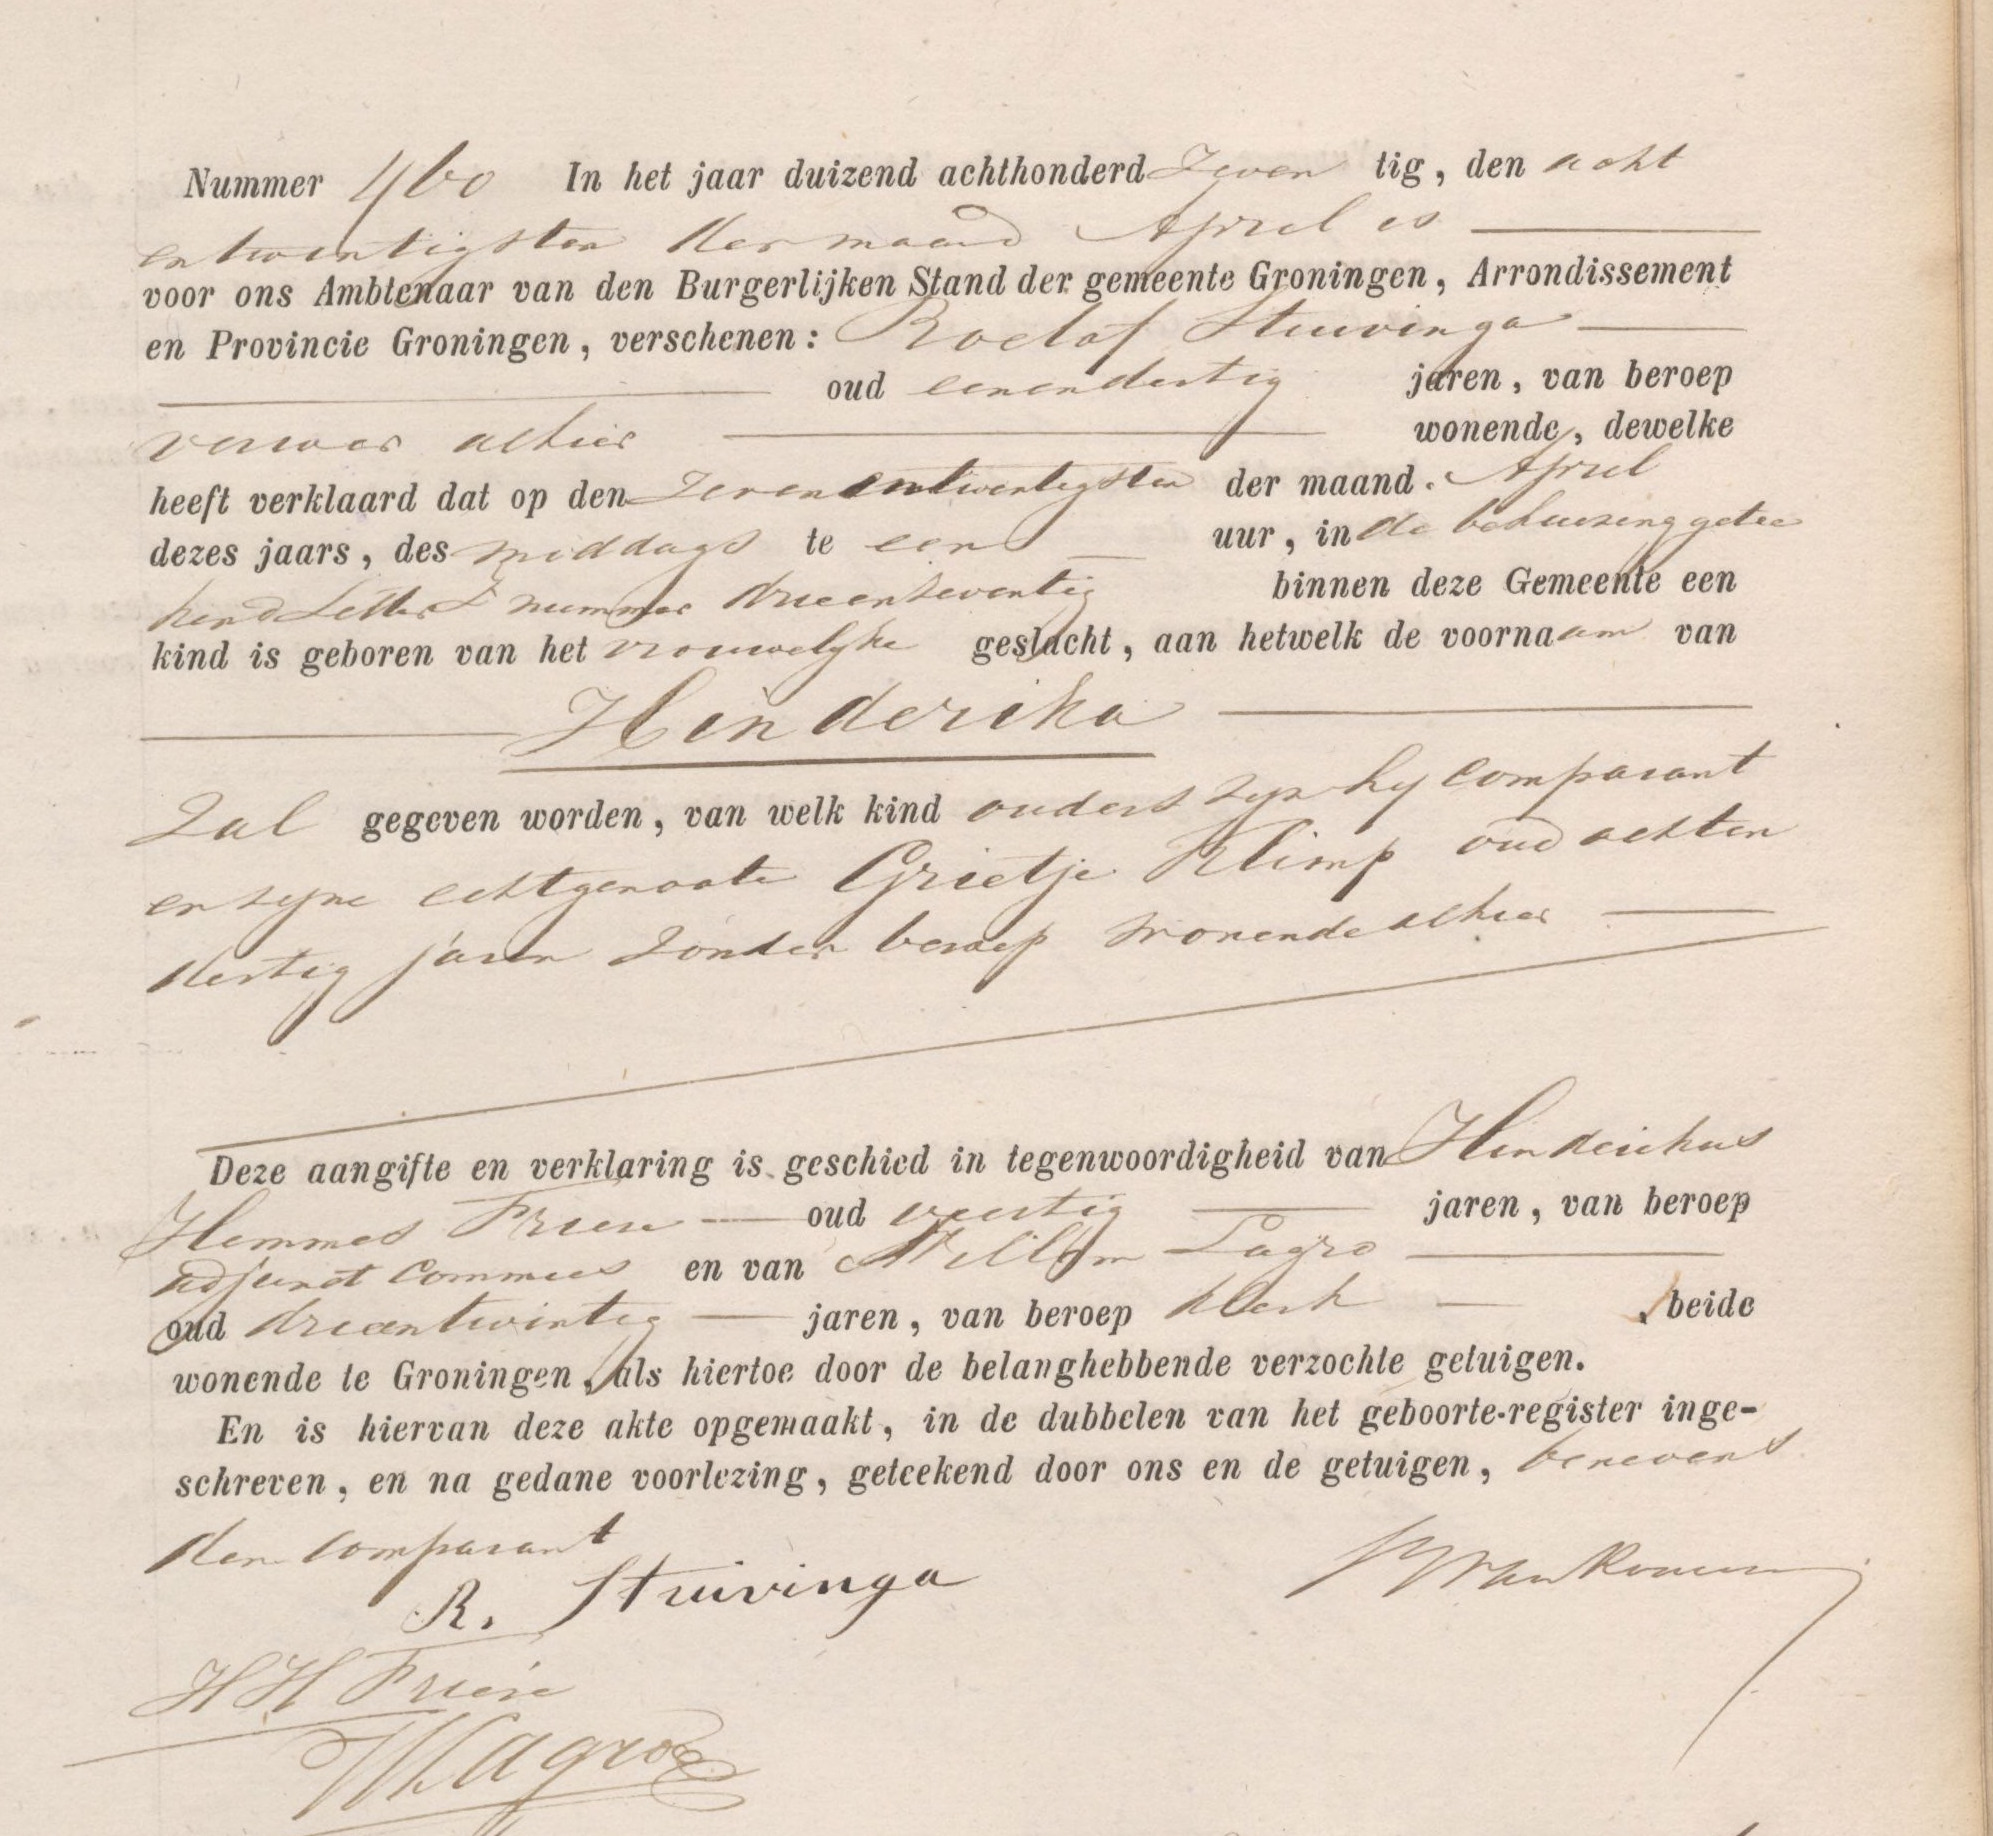 Nummer 460 In het jaar duizend achthonderd Zeven tig, den acht
entwintigsten der maand April is
voor ons Ambtenaar van den Burgerlijken Stand der gemeente Groningen, Arrondissement
en Provincie Groningen, verschenen: Roelof Stuivinga
oud eenendertig jaren, van beroep
verwer alhier wonende, dewelke
heeft verklaard dat op den Zevenentwintigsten der maand April
dezes jaars, des middags te een uur, in de behuizing getee
kend Letter nummer drieenzeventig binnen deze Gemeente een
kind is geboren van het vrouwelyke geslacht, aan hetwelk de voornaam van
Hinderika
Zal gegeven worden, van welk kind ouders zyn hy comparant
en zyne echtgenoote Grietje Klimp oud achten
dertig jaren Zonder beroep wonende alhier
Deze aangifte en verklaring is geschied in tegenwoordigheid van Hinderikus
Hemmes Friese oud veertig jaren, van beroep
adjunct Commies en van Willem Lagro
oud drieentwintig jaren, van beroep klerk , beide
wonende te Groningen, als hiertoe door de belanghebbende verzochte getuigen.
En is hiervan deze akte opgemaakt, in de dubbelen van het geboorte-register inge-
schreven, en na gedane voorlezing, geteekend door ons en de getuigen, benevens
den comparant
R. Stuivinga
HH Friese
WLagro